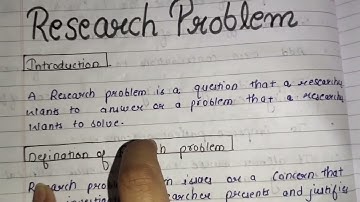 Research Problem
Introduction
A Research problem is a question that a researcher
wants to answer or a problem that a researcher
wants to solve.
Defination of problem
Research an issues or a Concern that
presents and justifies